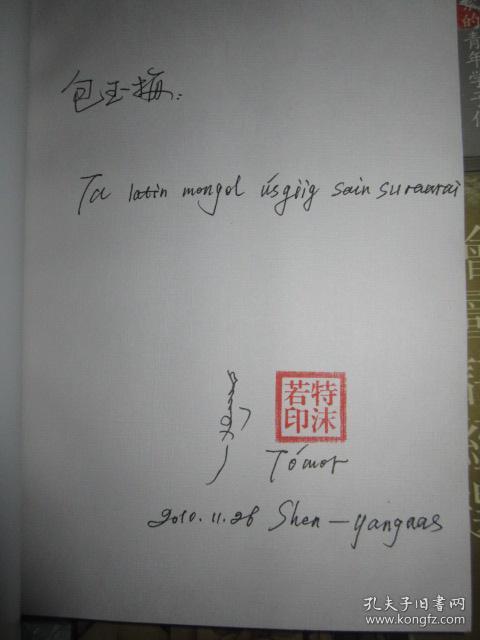 包玉梅:
Ta latin mongol úsgiig sain suraarai
特沫
若印
Tómor
2010.11.28 Shen-yangaas
孔夫子旧书网
www.kongfz.com